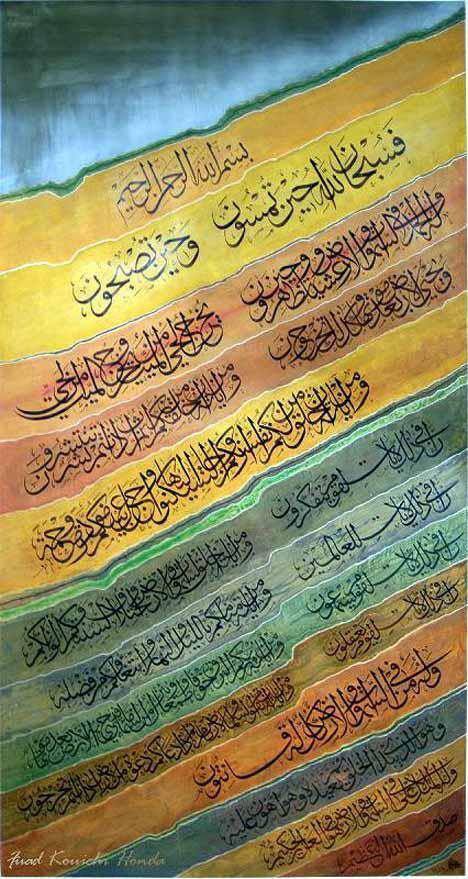 بسم الله الرحمن الرحيم
فسبحان الله حين تمسون وحين تصبحون
وله الحمد في السماوات والأرض وعشيا وحين تظهرون
يخرج الحي من الميت ويخرج الميت من الحي
ويحيي الأرض بعد موتها وكذلك تخرجون
ومن آياته أن خلقكم من تراب ثم إذا أنتم بشر تنتشرون
ومن آياته أن خلق لكم من أنفسكم أزواجا لتسكنوا إليها وجعل بينكم مودة ورحمة
إن في ذلك لآيات لقوم يتفكرون
ومن آياته خلق السماوات والأرض واختلاف ألسنتكم وألوانكم
إن في ذلك لآيات للعالمين
ومن آياته منامكم بالليل والنهار وابتغاؤكم من فضله
إن في ذلك لآيات لقوم يسمعون
ومن آياته يريكم البرق خوفا وطمعا وينزل من السماء ماء فيحيي به الأرض بعد موتها
إن في ذلك لآيات لقوم يعقلون
ومن آياته أن تقوم السماء والأرض بأمره ثم إذا دعاكم دعوة من الأرض إذا أنتم تخرجون
وله من في السماوات والأرض كل له قانتون
وهو الذي يبدأ الخلق ثم يعيده وهو أهون عليه
وله المثل الأعلى في السماوات والأرض وهو العزيز الحكيم
صدق الله العظيم
Fuad Kouichi Honda